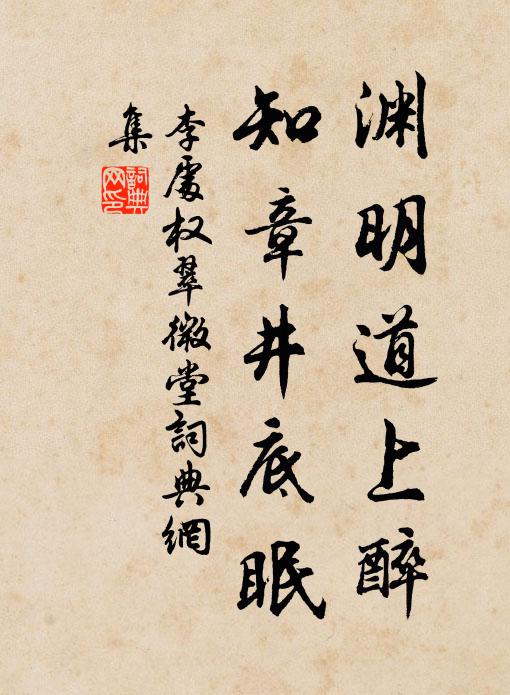 渊明道上醉
知章井底眠
李處权翠微堂詞典網
集
詞典
网印